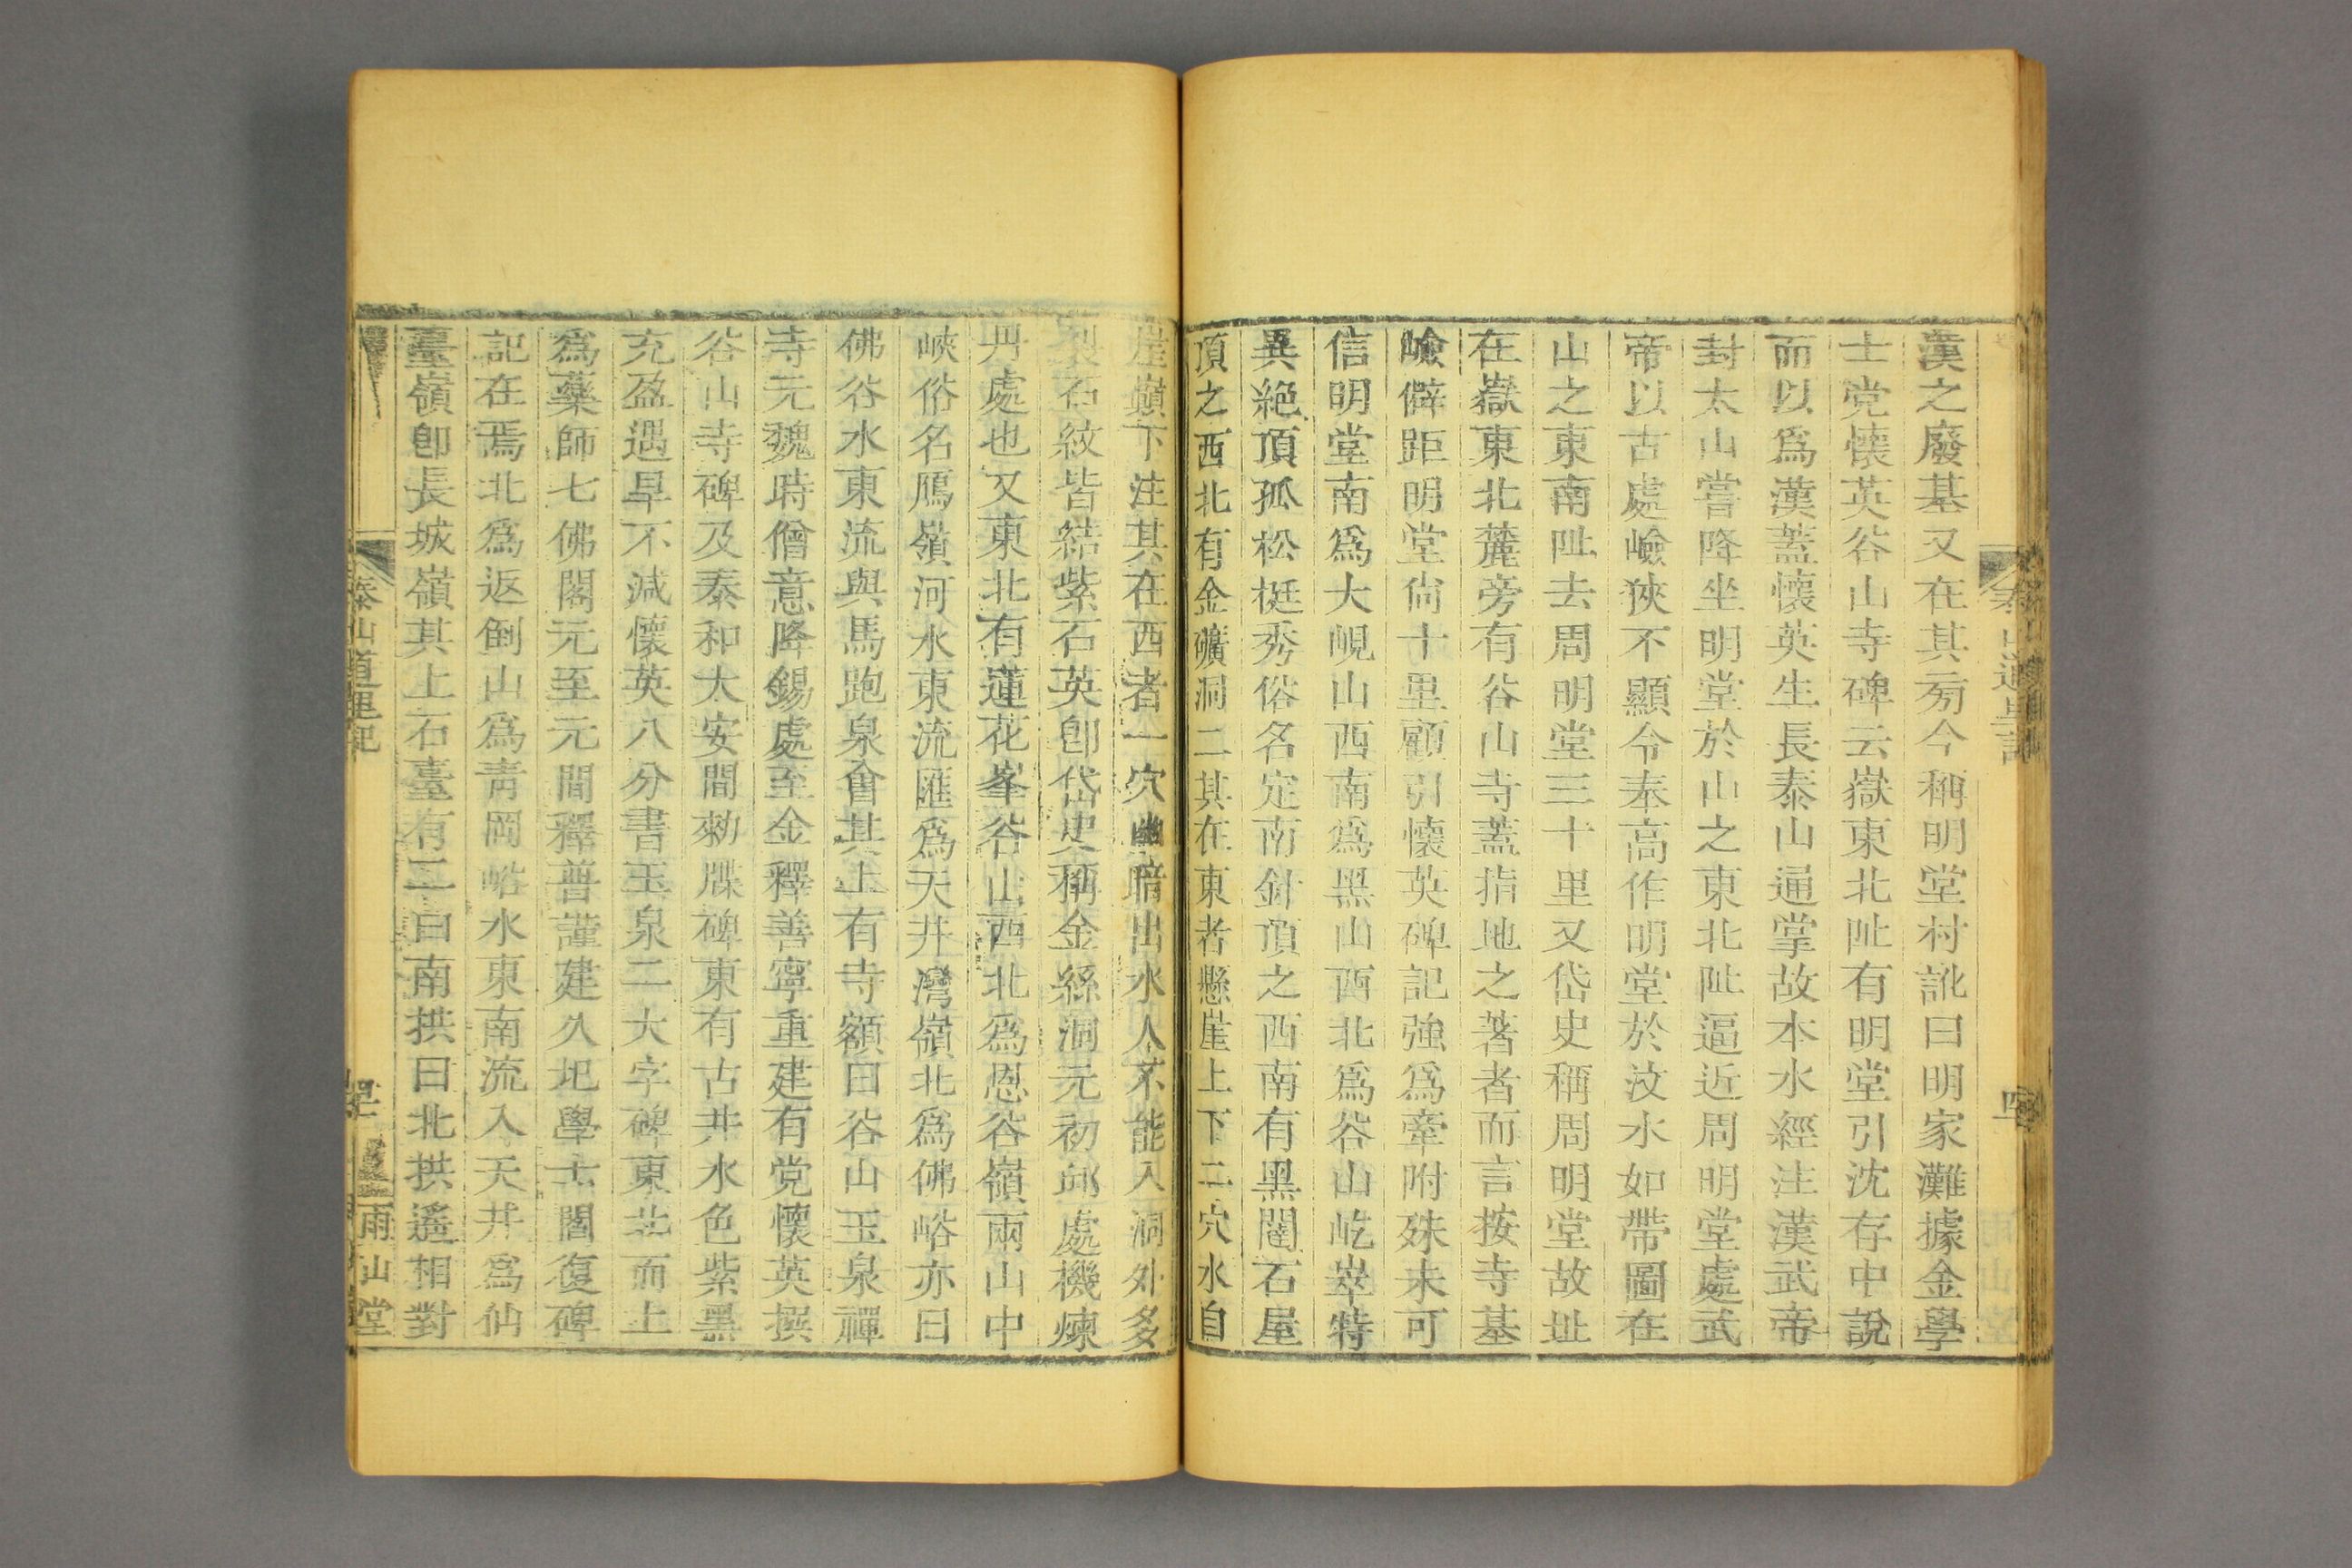 漢之廢基又在其旁今稱明堂村訛曰明家灘據金學
士党懷英谷山寺碑云嶽東北阯有明堂引沈存中說
而以爲漢蓋懷英生長泰山通掌故本水經注漢武帝
封太山嘗降坐明堂於山之東北阯逼近周明堂處武
帝以古處嶮狹不顯令奉高作明堂於汶水如帶圖在
山之東南阯去周明堂三十里又岱史稱周明堂故址
在嶽東北麓旁有谷山寺蓋指地之著者而言按寺基
嶮僻距明堂尙十里顧引懷英碑記強爲牽附殊未可
信明堂南爲大峴山西南爲黑山西北爲谷山屹崒特
異絕頂孤松挺秀俗名定南針頂之西南有黑闥石屋
頂之西北有金礦洞二其在東者懸崖上下二穴水自
崖巔下注其在西者一穴幽暗出水人不能入洞外多
製石紋皆結紫石英卽岱史稱金絲洞元初邱處機煉
丹處也又東北有蓮花峯谷山西北爲恩谷嶺兩山中
峽俗名鴈嶺河水東流匯爲天井灣嶺北爲佛峪亦曰
佛谷水東流與馬跑泉會其上有寺額曰谷山玉泉禪
寺元魏時僧意降錫處至金釋善寧重建有党懷英撰
谷山寺碑及泰和大安間勑牒碑東有古井水色紫黑
充盈遇旱不減懷英八分書玉泉二大字碑東北而上
爲藥師七佛閣元至元間釋普謹建久圮學士閻復碑
記在焉北爲返倒山爲靑岡峪水東南流入天井爲仙
臺嶺卽長城嶺其上石臺有二曰南拱曰北拱遙相對
泰山道里記
雨山堂